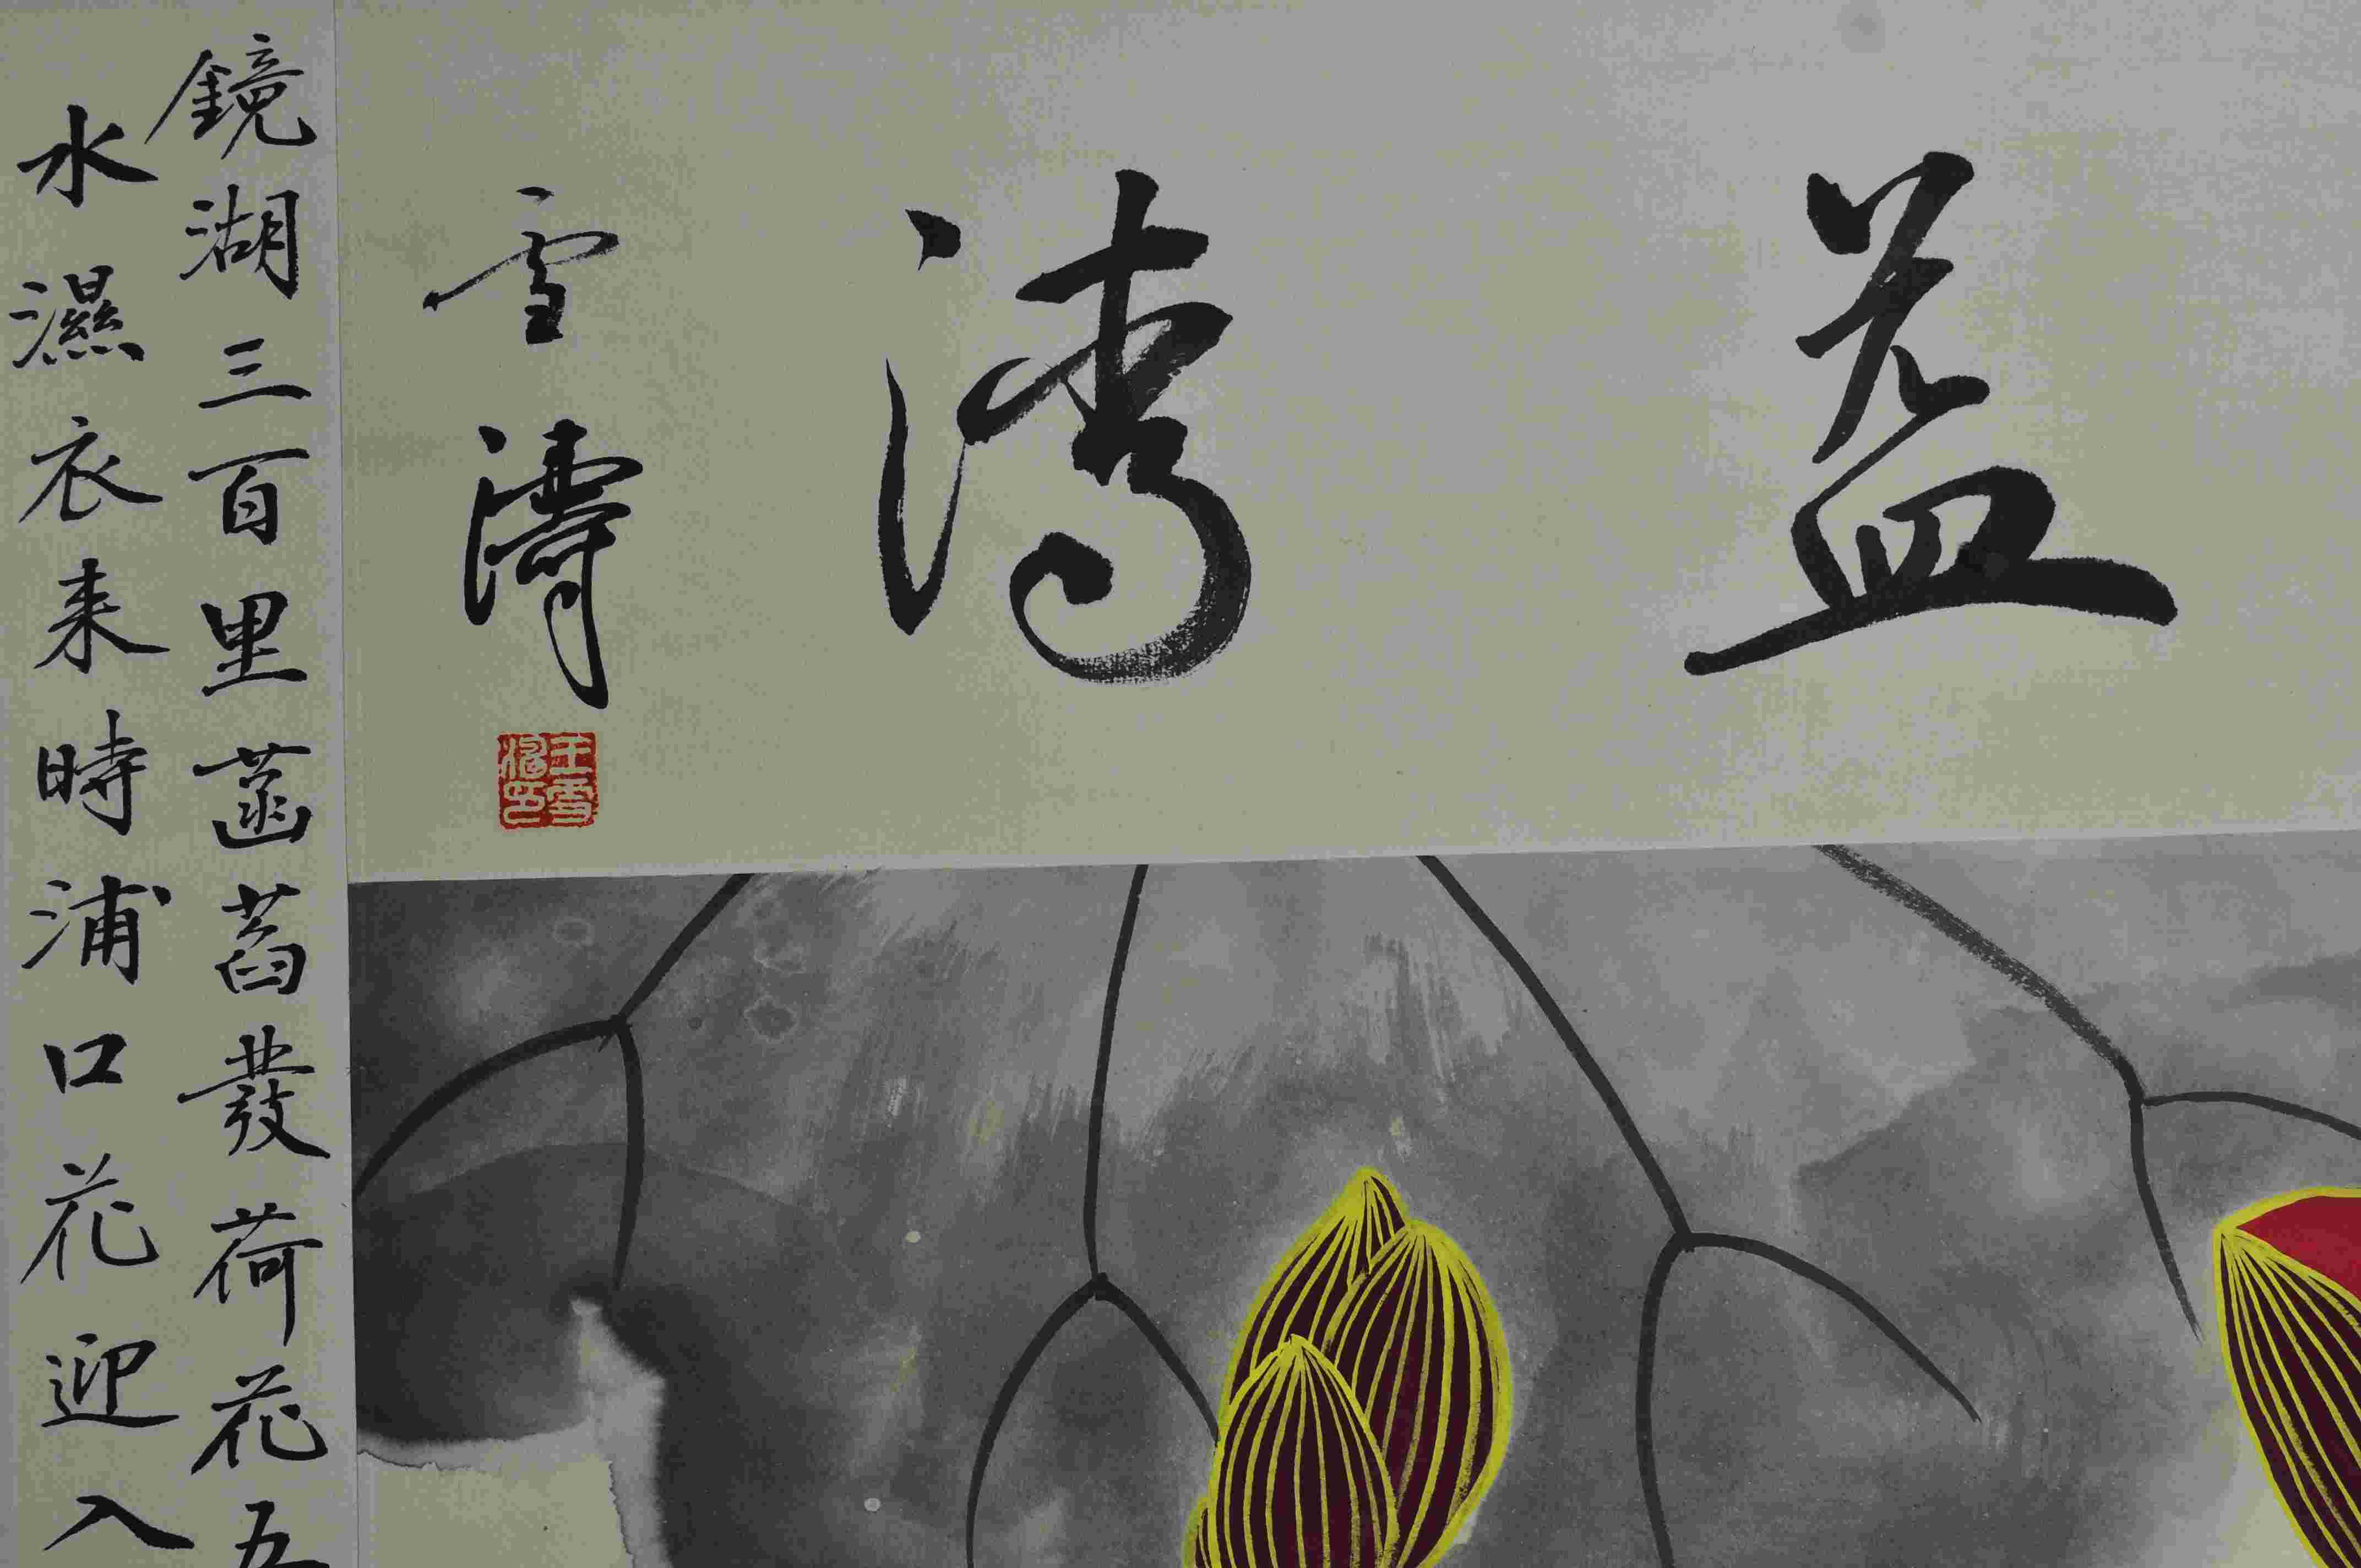 益清
雪濤
王雪濤印
鏡湖三百里菡萏發荷花五
水濕衣来時浦口花迎入